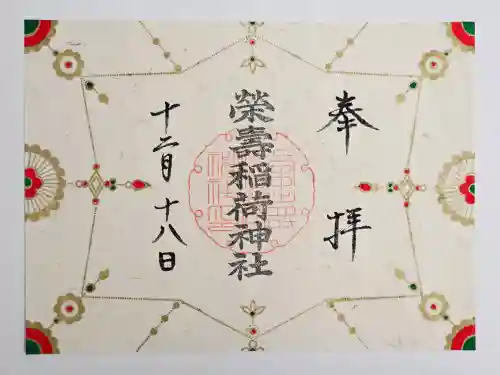 奉拝
榮壽稲荷神社
十二月十八日